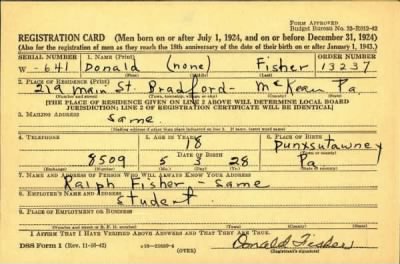 FORM APPROVED
Budget Bureau No. 33-R012-42
REGISTRATION CARD (Men born on or after July 1, 1924, and on or before December 31, 1924)
(Also for the registration of men as they reach the 18th anniversary of the date of their birth on or after January 1, 1943.)
SERIAL NUMBER 1. NAME (Print) ORDER NUMBER
W-641 Donald (none) Fisher 13237
(First) (Middle) (Last)
2. PLACE OF RESIDENCE (Print)
219 Main St. Bradford - McKean Pa.
[THE PLACE OF RESIDENCE GIVEN ON LINE 2 ABOVE WILL DETERMINE LOCAL BOARD
JURISDICTION; LINE 2 OF REGISTRATION CERTIFICATE WILL BE IDENTICAL]
3. MAILING ADDRESS
Same.
[Mailing address if other than place indicated on line 2. If same, insert word same]
4. TELEPHONE 5. AGE IN YEARS 6. PLACE OF BIRTH
18 Punxsutawney
DATE OF BIRTH
8509 5 3 28 Pa
7. NAME AND ADDRESS OF PERSON WHO WILL ALWAYS KNOW YOUR ADDRESS
Ralph Fisher - Same
8. EMPLOYER'S NAME AND ADDRESS
Student.
9. PLACE OF EMPLOYMENT OR BUSINESS
I AFFIRM THAT I HAVE VERIFIED ABOVE ANSWERS AND THAT THEY ARE TRUE.
DSS Form 1 (Rev. 11-16-42) (OVER) Donald Fisher
(Registrant's signature)